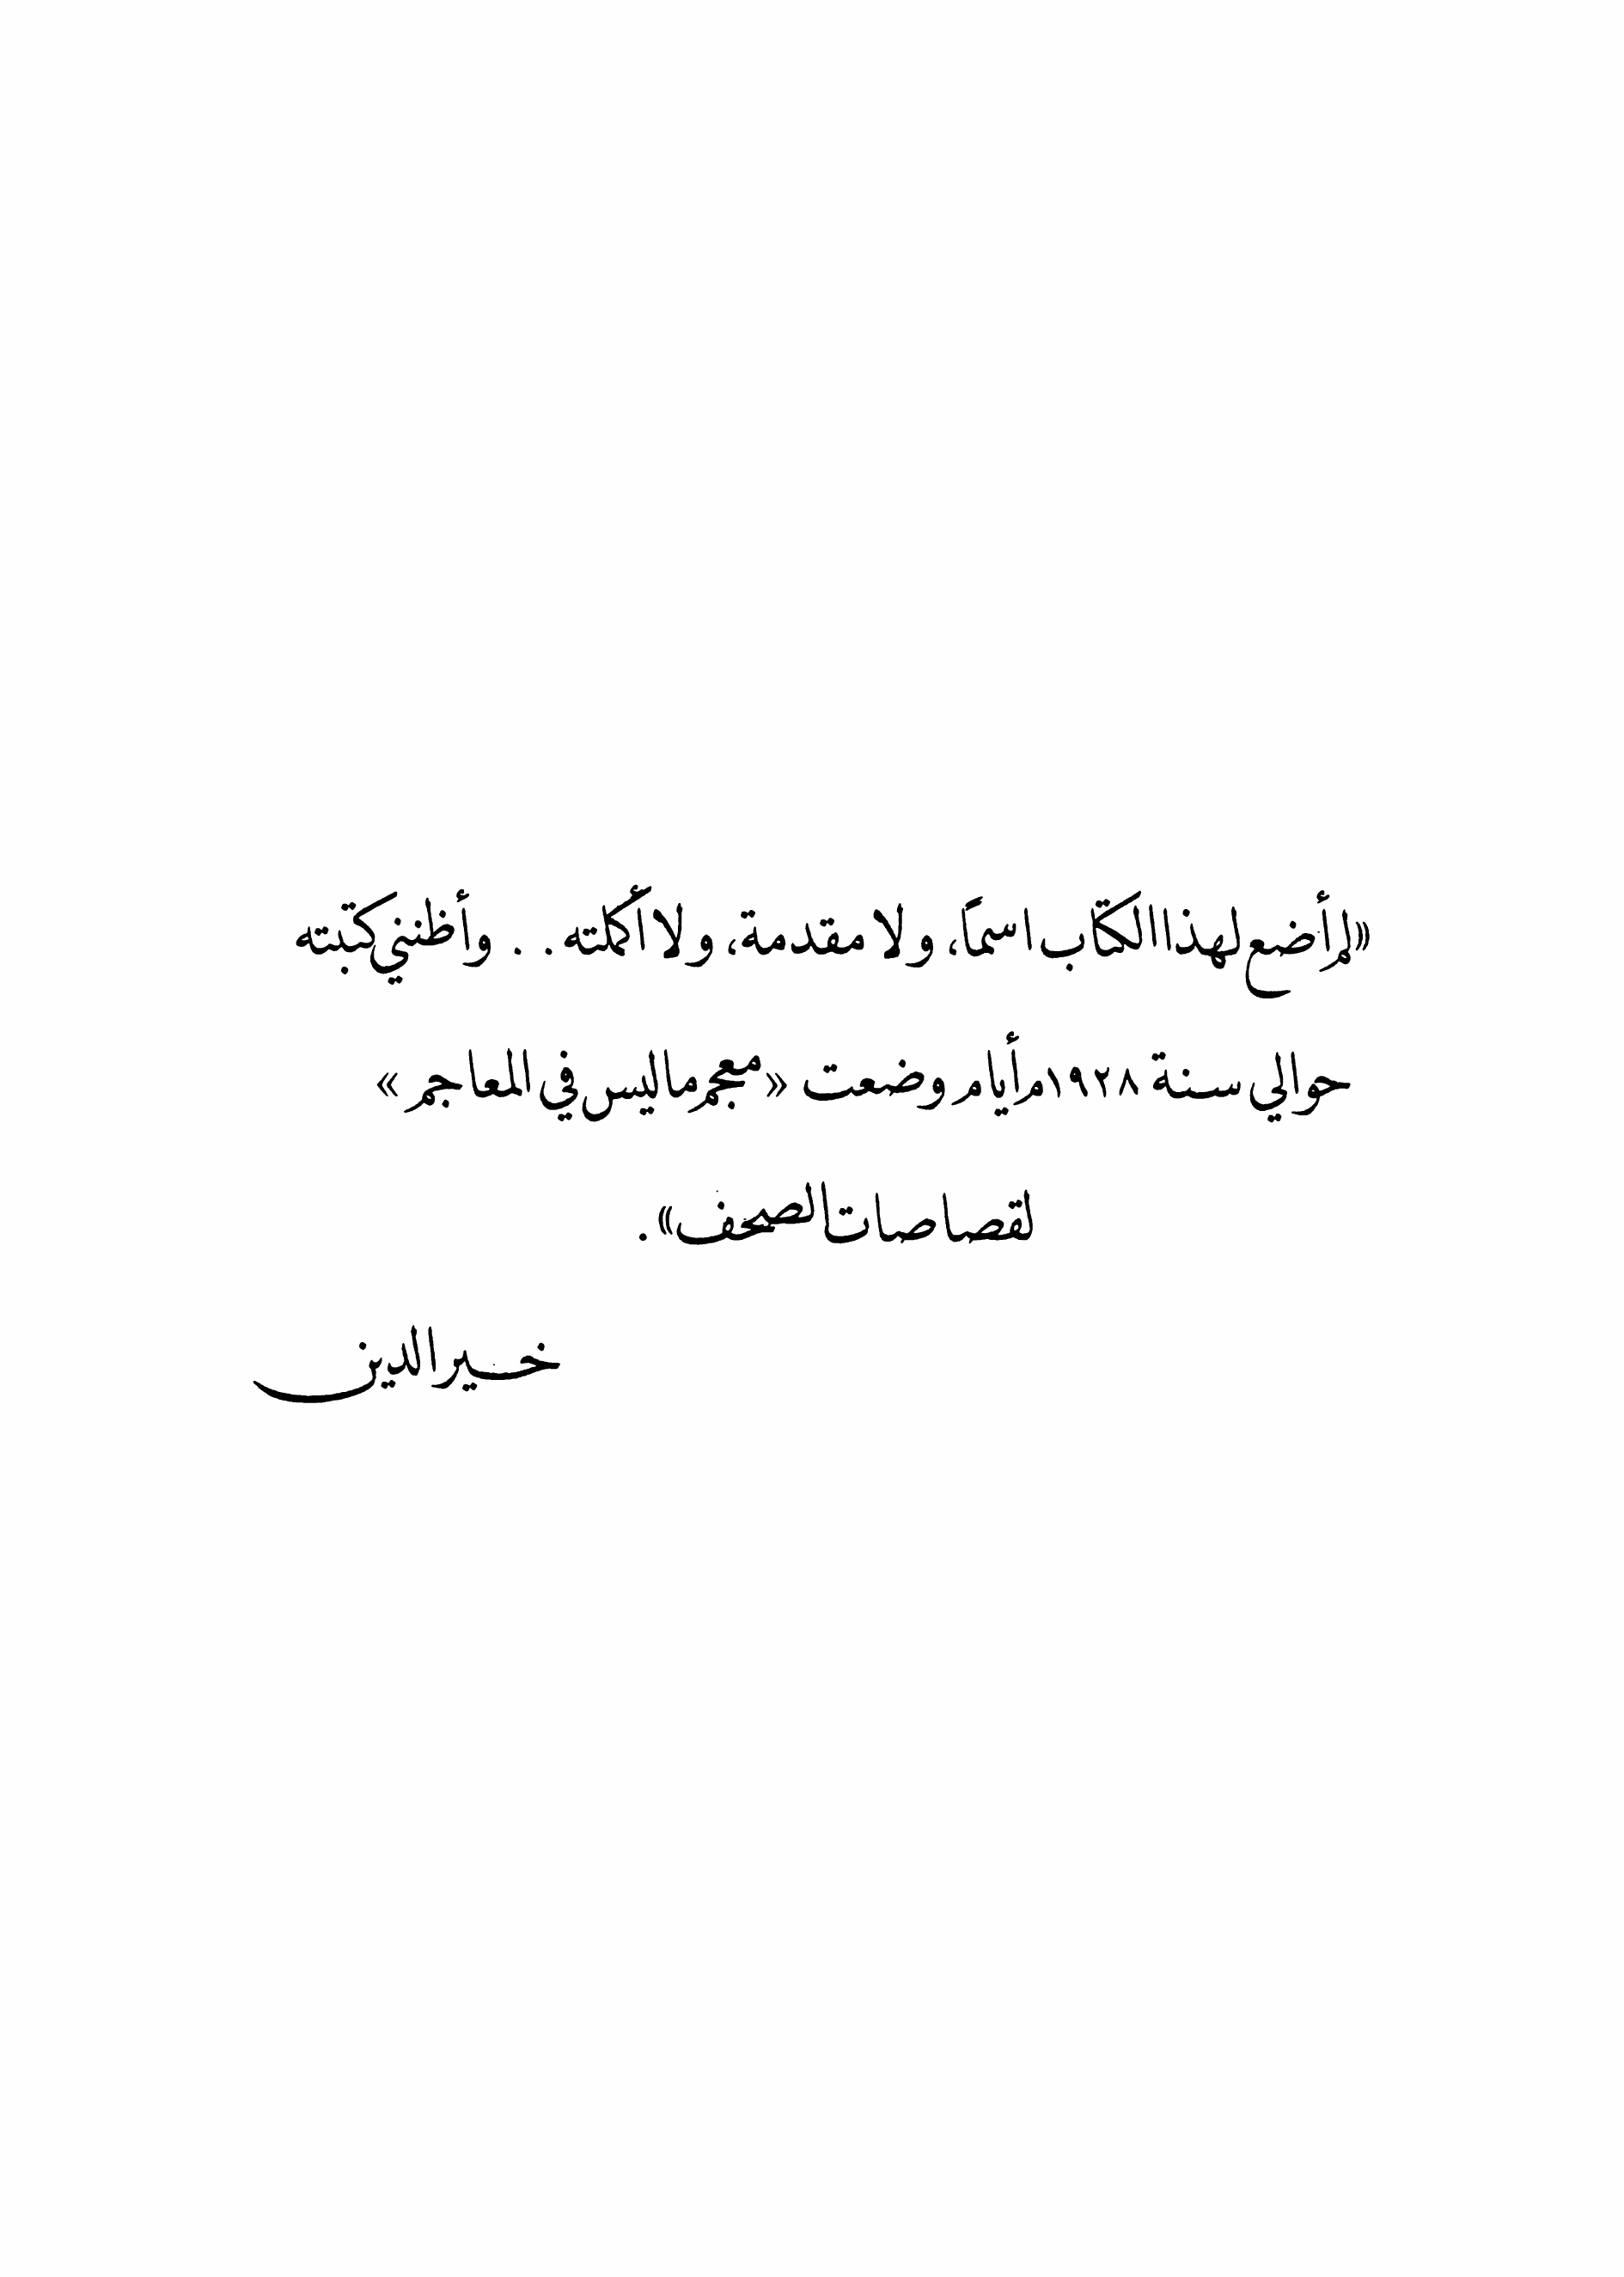 «لم أضع لهذا الكتاب اسمًا، ولا مقدمة، ولا أكملته . . وأظنني كتبته
حوالي سنة ١٩٢٨م أيام وضعت «معجم ما ليس في المعاجم»
لقصاصات الصحف».
خير الدين